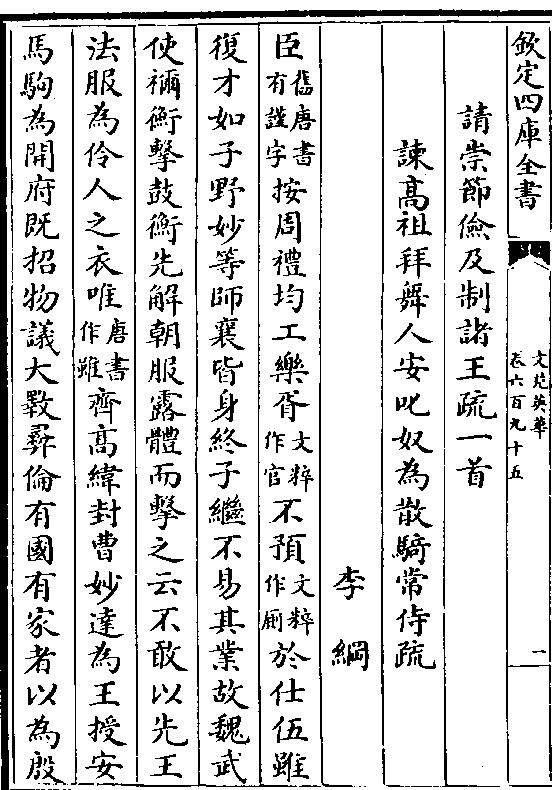 欽定四庫全書
文苑英華
卷六百九十五
一
請崇節儉及制諸王疏一首
諫高祖拜舞人安叱奴為散騎常侍疏
李綱
臣舊唐書有謹字按周禮均工樂胥文粹作官不預文粹作厠於仕伍雖
復才如子野妙等師襄皆身終子繼不易其業故魏武
使禰衡擊鼓衡先解朝服露體而擊之云不敢以先王
法服為伶人之衣唯唐書作雖齊高緯封曹妙達為王授安
馬駒為開府既招物議大斁彛倫有國有家者以為殷